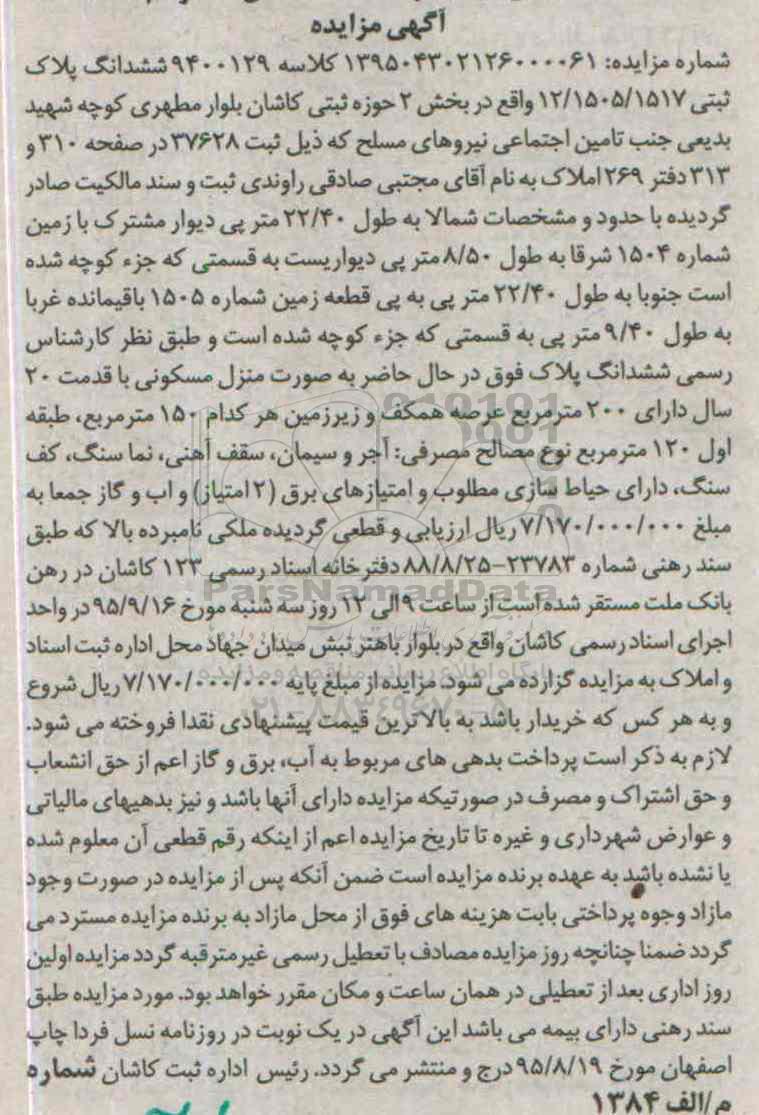 آگهی مزایده
شماره مزایده: ۱۳۹۵۰۴۳۰۲۱۲۶۰۰۰۰۶۱ کلاسه ۹۴۰۰۱۲۹ ششدانگ پلاک
ثبتی ۱۲/۱۵۰۵/۱۵۱۷ واقع در بخش ۲ حوزه ثبتی کاشان بلوار مطهری کوچه شهید
بدیعی جنب تامین اجتماعی نیروهای مسلح که ذیل ثبت ۳۷۶۲۸ در صفحه ۳۱۰ و
۳۱۳ دفتر ۲۶۹ املاک به نام آقای مجتبی صادقی راوندی ثبت و سند مالکیت صادر
گردیده با حدود و مشخصات شمالا به طول ۲۲/۴۰ متر پی دیوار مشترک با زمین
شماره ۱۵۰۴ شرقا به طول ۸/۵۰ متر پی دیواریست به قسمتی که جزء کوچه شده
است جنوبا به طول ۲۲/۴۰ متر پی به پی قطعه زمین شماره ۱۵۰۵ باقیمانده غربا
به طول ۹/۴۰ متر پی به قسمتی که جزء کوچه شده است و طبق نظر کارشناس
رسمی ششدانگ پلاک فوق در حال حاضر به صورت منزل مسکونی با قدمت ۲۰
سال دارای ۲۰۰ مترمربع عرصه همکف و زیرزمین هر کدام ۱۵۰ مترمربع، طبقه
اول ۱۲۰ مترمربع نوع مصالح مصرفی: آجر و سیمان، سقف آهنی، نما سنگ، کف
سنگ، دارای حیاط سازی مطلوب و امتیازهای برق (۲ امتیاز) و اب و گاز جمعا به
مبلغ ۷/۱۷۰/۰۰۰/۰۰۰ ریال ارزیابی و قطعی گردیده ملکی نامبرده بالا که طبق
سند رهنی شماره ۲۳۷۸۳-۸۸/۸/۲۵ دفترخانه اسناد رسمی ۱۲۳ کاشان در رهن
بانک ملت مستقر شده است از ساعت ۹ الی ۱۲ روز سه شنبه مورخ ۹۵/۹/۱۶ در واحد
اجرای اسناد رسمی کاشان واقع در بلوار باهنر نبش میدان جهاد محل اداره ثبت اسناد
و املاک به مزایده گزارده می شود. مزایده از مبلغ پایه ۷/۱۷۰/۰۰۰/۰۰۰ ریال شروع
و به هر کس که خریدار باشد به بالاترین قیمت پیشنهادی نقدا فروخته می شود.
لازم به ذکر است پرداخت بدهی های مربوط به آب، برق و گاز اعم از حق انشعاب
و حق اشتراک و مصرف در صورتیکه مزایده دارای آنها باشد و نیز بدهیهای مالیاتی
و عوارض شهرداری و غیره تا تاریخ مزایده اعم از اینکه رقم قطعی آن معلوم شده
یا نشده باشد به عهده برنده مزایده است ضمن آنکه پس از مزایده در صورت وجود
مازاد وجوه پرداختی بابت هزینه های فوق از محل مازاد به برنده مزایده مسترد می
گردد ضمنا چنانچه روز مزایده مصادف با تعطیل رسمی غیرمترقبه گردد مزایده اولین
روز اداری بعد از تعطیلی در همان ساعت و مکان مقرر خواهد بود. مورد مزایده طبق
سند رهنی دارای بیمه می باشد این آگهی در یک نوبت در روزنامه نسل فردا چاپ
اصفهان مورخ ۹۵/۸/۱۹ درج و منتشر می گردد. رئیس اداره ثبت کاشان شماره
م/الف ۱۳۸۴
ParsNamadData